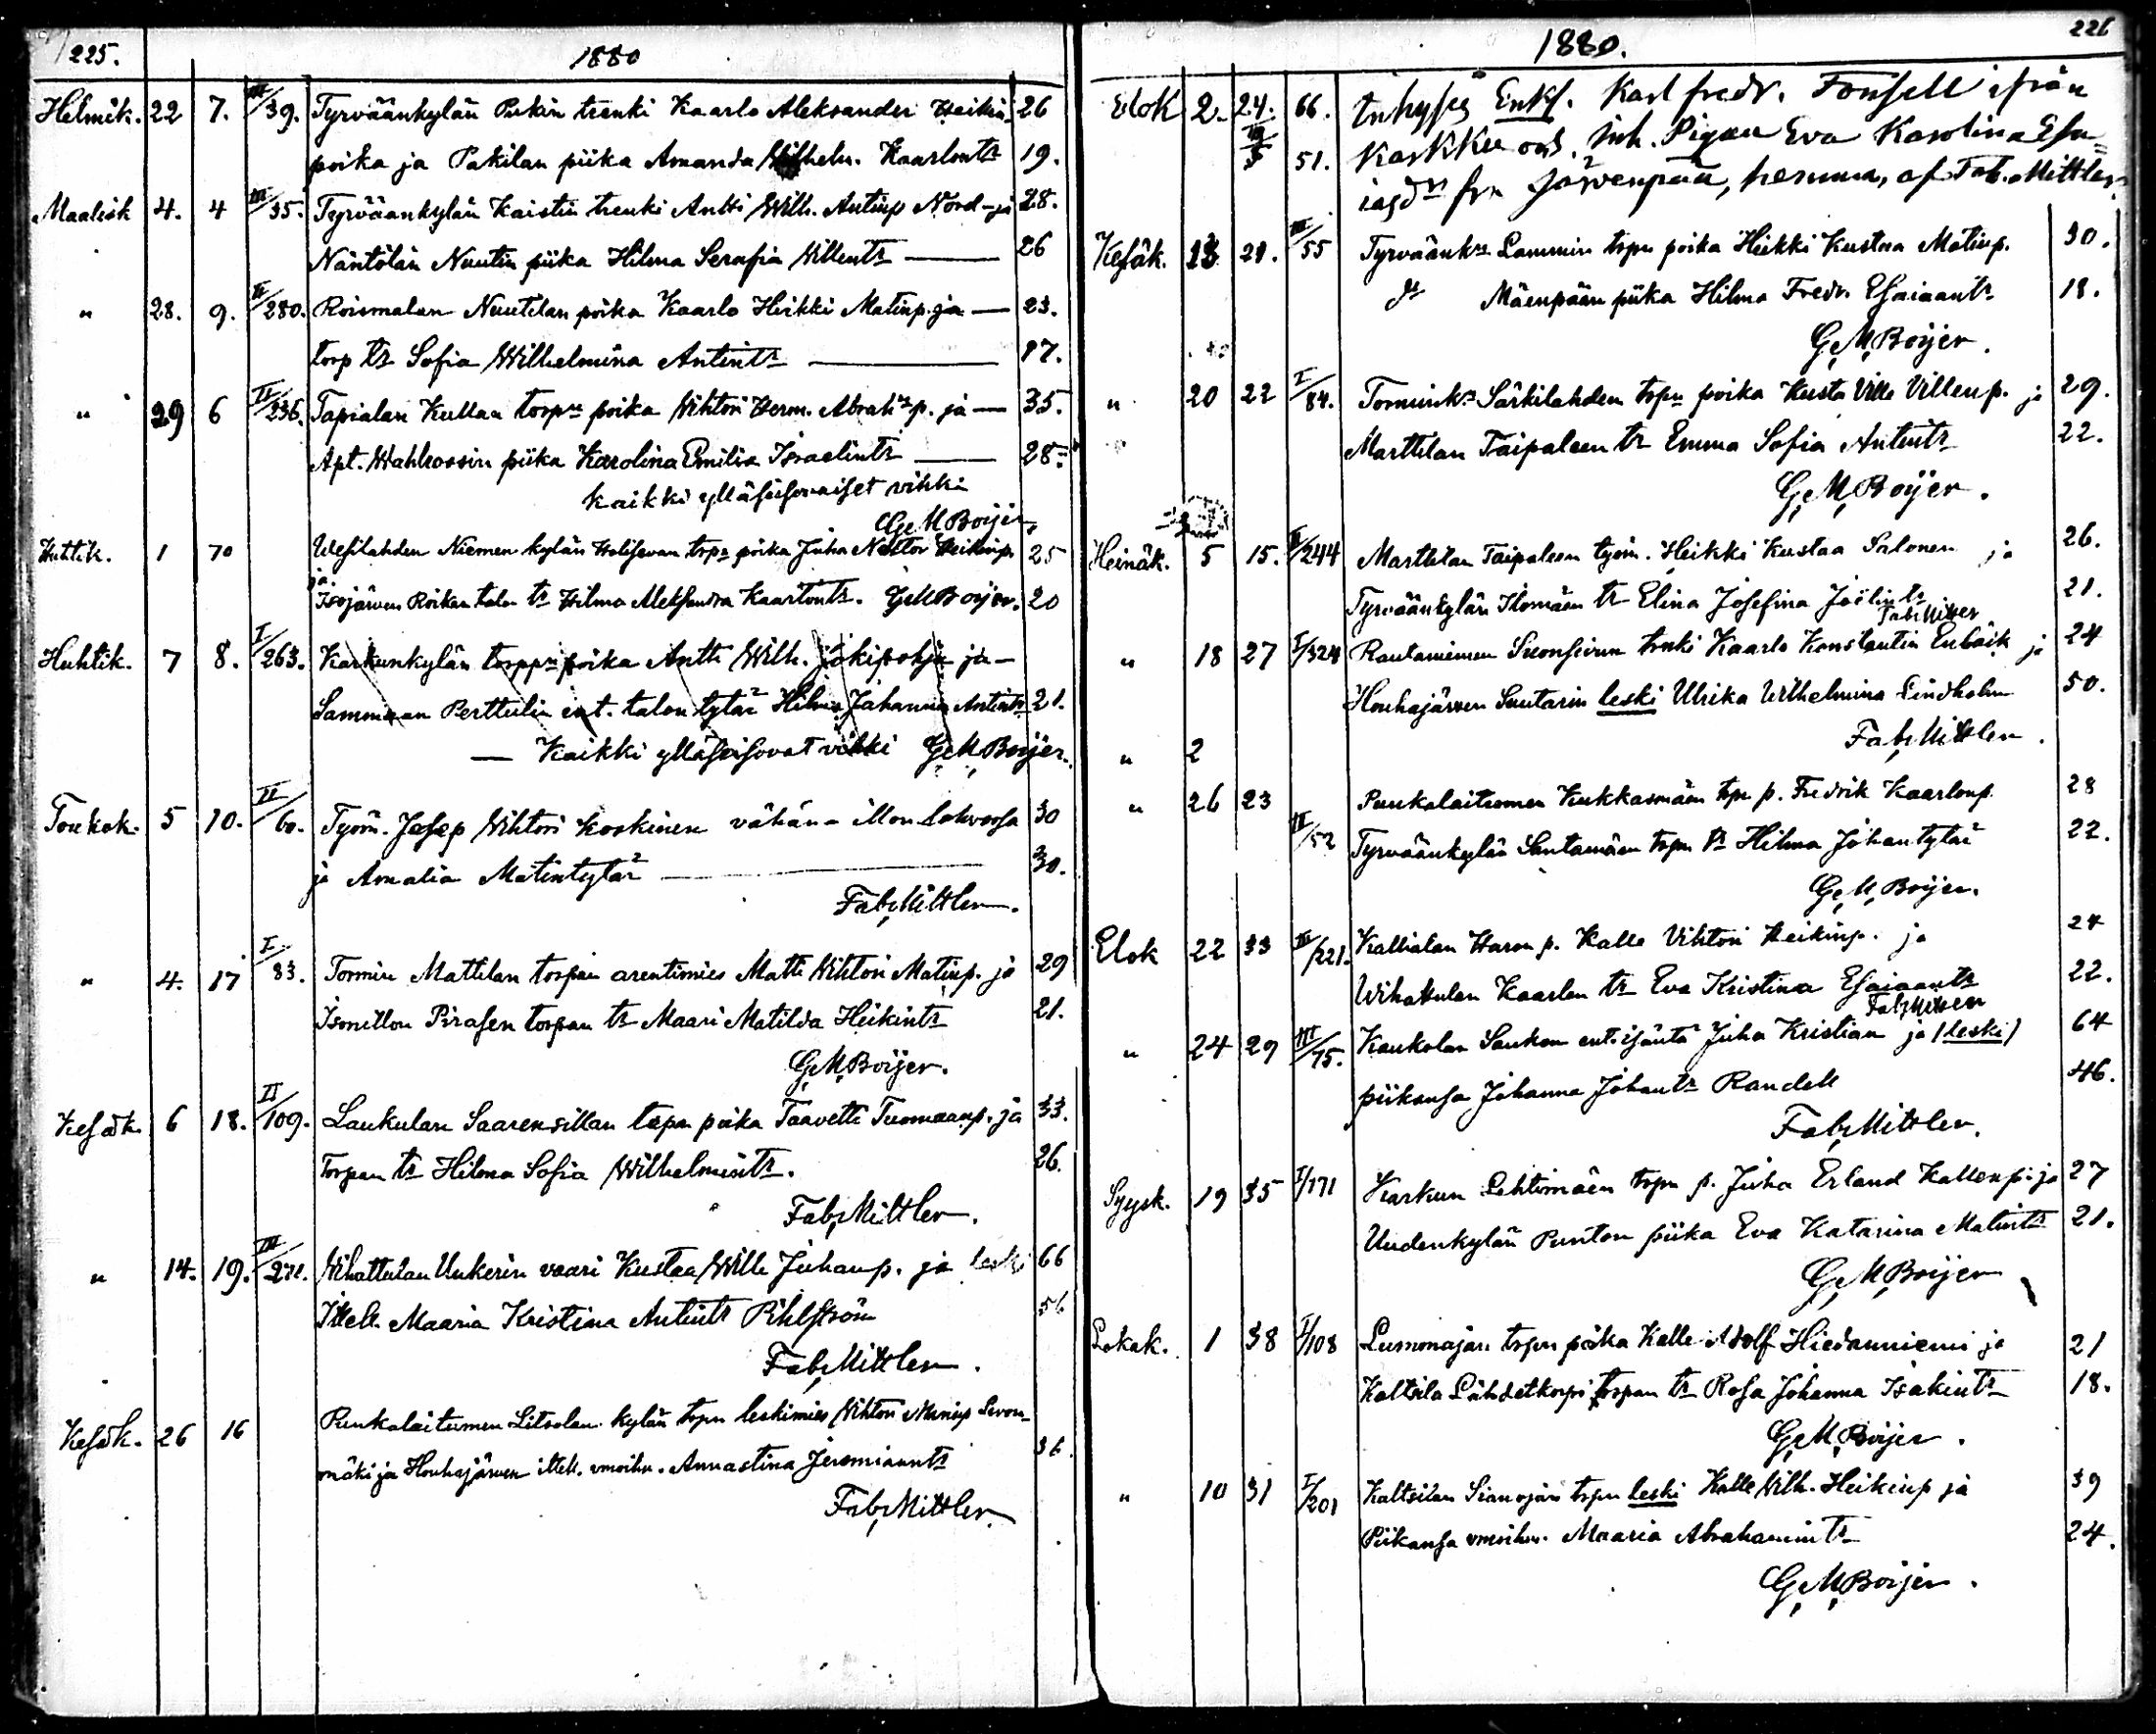 225.
1880
Helmik. 22 7. III/39. Tyrväänkylän Pukin trenki Kaarlo Aleksander Heikin 26
poika ja Pakilan piika Amanda Wilhelm. Kaarlontr 19.
Maalisk 4. 4 III/35. Tyrväänkylän Kaistin trenki Antti Wilh. Antinp Nord - ja 28.
Näntölän Nuutin piika Hilma Serafia Villentr — 26
" 28. 9. II/280. Roismalan Nuutilan poika Kaarlo Heikki Matinp. ja — 23.
torp tr Sofia Wilhelmina Antintr — 17.
" 29 6 II/236. Tapialan Kullaa torpn poika Vihtori Herm. Abrah p. ja — 35.
Apt. Wahlroosin piika Karolina Emilia Israelintr — 28.
Kaikki ylläseisovaiset vihki
G. M. Boijer.
Huhtik. 1 70 Wesilahden Niemen kylän torpn poika Juha Nestor Heikinp. 25
ja
Isojärven Roikan talon tr Hilma Aleksandra Kaarlontr. G. M. Boijer. 20
Huhtik. 7 8. I/263. Karkunkylän torppn poika Antti Wilh. Jokipohja ja —
Sammaan Perttulin ent. talon tytär Hilma Johanna Antintr 21.
— Kaikki ylläseisovat vihki G. M. Boijer.
Toukok. 5 10. II/60. Työm. Josep Vihtori Koskinen vähän - illon lahvossa 30
ja Amalia Matintytär — 30.
Fab. Mittler.
" 4. 17 I/83. Tormin Mattilan torpan arentimies Matti Vihtori Matinp. ja 29
Isonillon Pirasen torpan tr Maari Matilda Heikintr 21.
G. M. Boijer.
Kesäk. 6 18. II/109. Laukulan Saarensillan torpn poika Taavetti Tuomaanp. ja 33.
Torpan tr Hilma Sofia Wilhelmintr. 26.
Fab. Mittler.
" 14. 19. III/271. Vihattulan Unkerin vaari Kustaa Wille Juhanp. ja leski 66
Itell. Maaria Kristina Antintr Pihlström 56
Fab. Mittler.
Kesäk. 26 16 Punkalaitumen Liitsolan kylän torpn leskimies Vihtori
mäki ja Houhajärven itell. vmoihn. Annastina Jeremiaantr 36.
Fab. Mittler.
226
1880.
Elok 2. 24. 66. Inhyses Enkl. Karl fredr. Fonsell ifrån
51. Karkku och inh. Pigan Eva Karolina Esa=
iasdr frn Järvenpää, hemma, af Fab. Mittler.
Kesäk. 13 21. III/55 Tyrväänkn Lammin torpn poika Heikki Kustaa Matinp. 30.
Mäenpään piika Hilma Fredr. Esaiaantr 18.
G. M. Boijer.
" 20 22 I/84. Torminkn Särkilahden torpn poika Kusta Ville Villenp. ja 29.
Marttilan Taipaleen tr Emma Sofia Antintr 22.
G. M. Boijer.
Heinäk. 5 15. II/244 Marttilan Taipaleen työm. Heikki Kustaa Salonen ja 26.
Tyrväänkylän Ilomäen tr Elina Josefina Joelintr 21.
Fab. Mittler
" 18 27 I/324 Rautaniemen Suonsivun trenki Kaarlo Konstantin Enbäck ja 24
Houhajärven Suutarin leski Ulrika Wilhelmina Lindholm 50.
Fab. Mittler.
" 2
" 26 23 Punkalaitumen Kukkasmäen torpn p. Fredrik Kaarlonp. 28
III/52 Tyrväänkylän Santamäen torpn tr Hilma Johantytär 22.
G. M. Boijer.
Elok 22 33 III/221. Kallialan Haron p. Kalle Vihtori Heikinp. ja 24
Wihattulan Kaarlen tr Eva Kristina Esaiaantr 22.
Fab. Mittler
" 24 29 III/75. Kaukolan Saukon ent. isäntä Juha Kristian ja (leski) 64
piikansa Johanna Johantr Randell 46.
Fab. Mittler.
Syysk. 19 35 I/171 Karkun Lehtimäen torpn p. Juha Erland Kallenp. ja 27
Uudenkylän Punton piika Eva Katarina Matintr 21.
G. M. Boijer
Lokak. 1 38 I/108 Lummajan torpn poika Kalle Adolf Hiedanniemi ja 21
Kaltsila Lähdetkorpi torpan tr Rosa Johanna Isakintr 18.
G. M. Boijer.
" 10 31 I/201 Kaltsilan Sianojan torpn leski Kalle Vilh. Heikinp ja 39
Piikansa vmoihn. Maaria Abrahamintr 24.
G. M. Boijer.